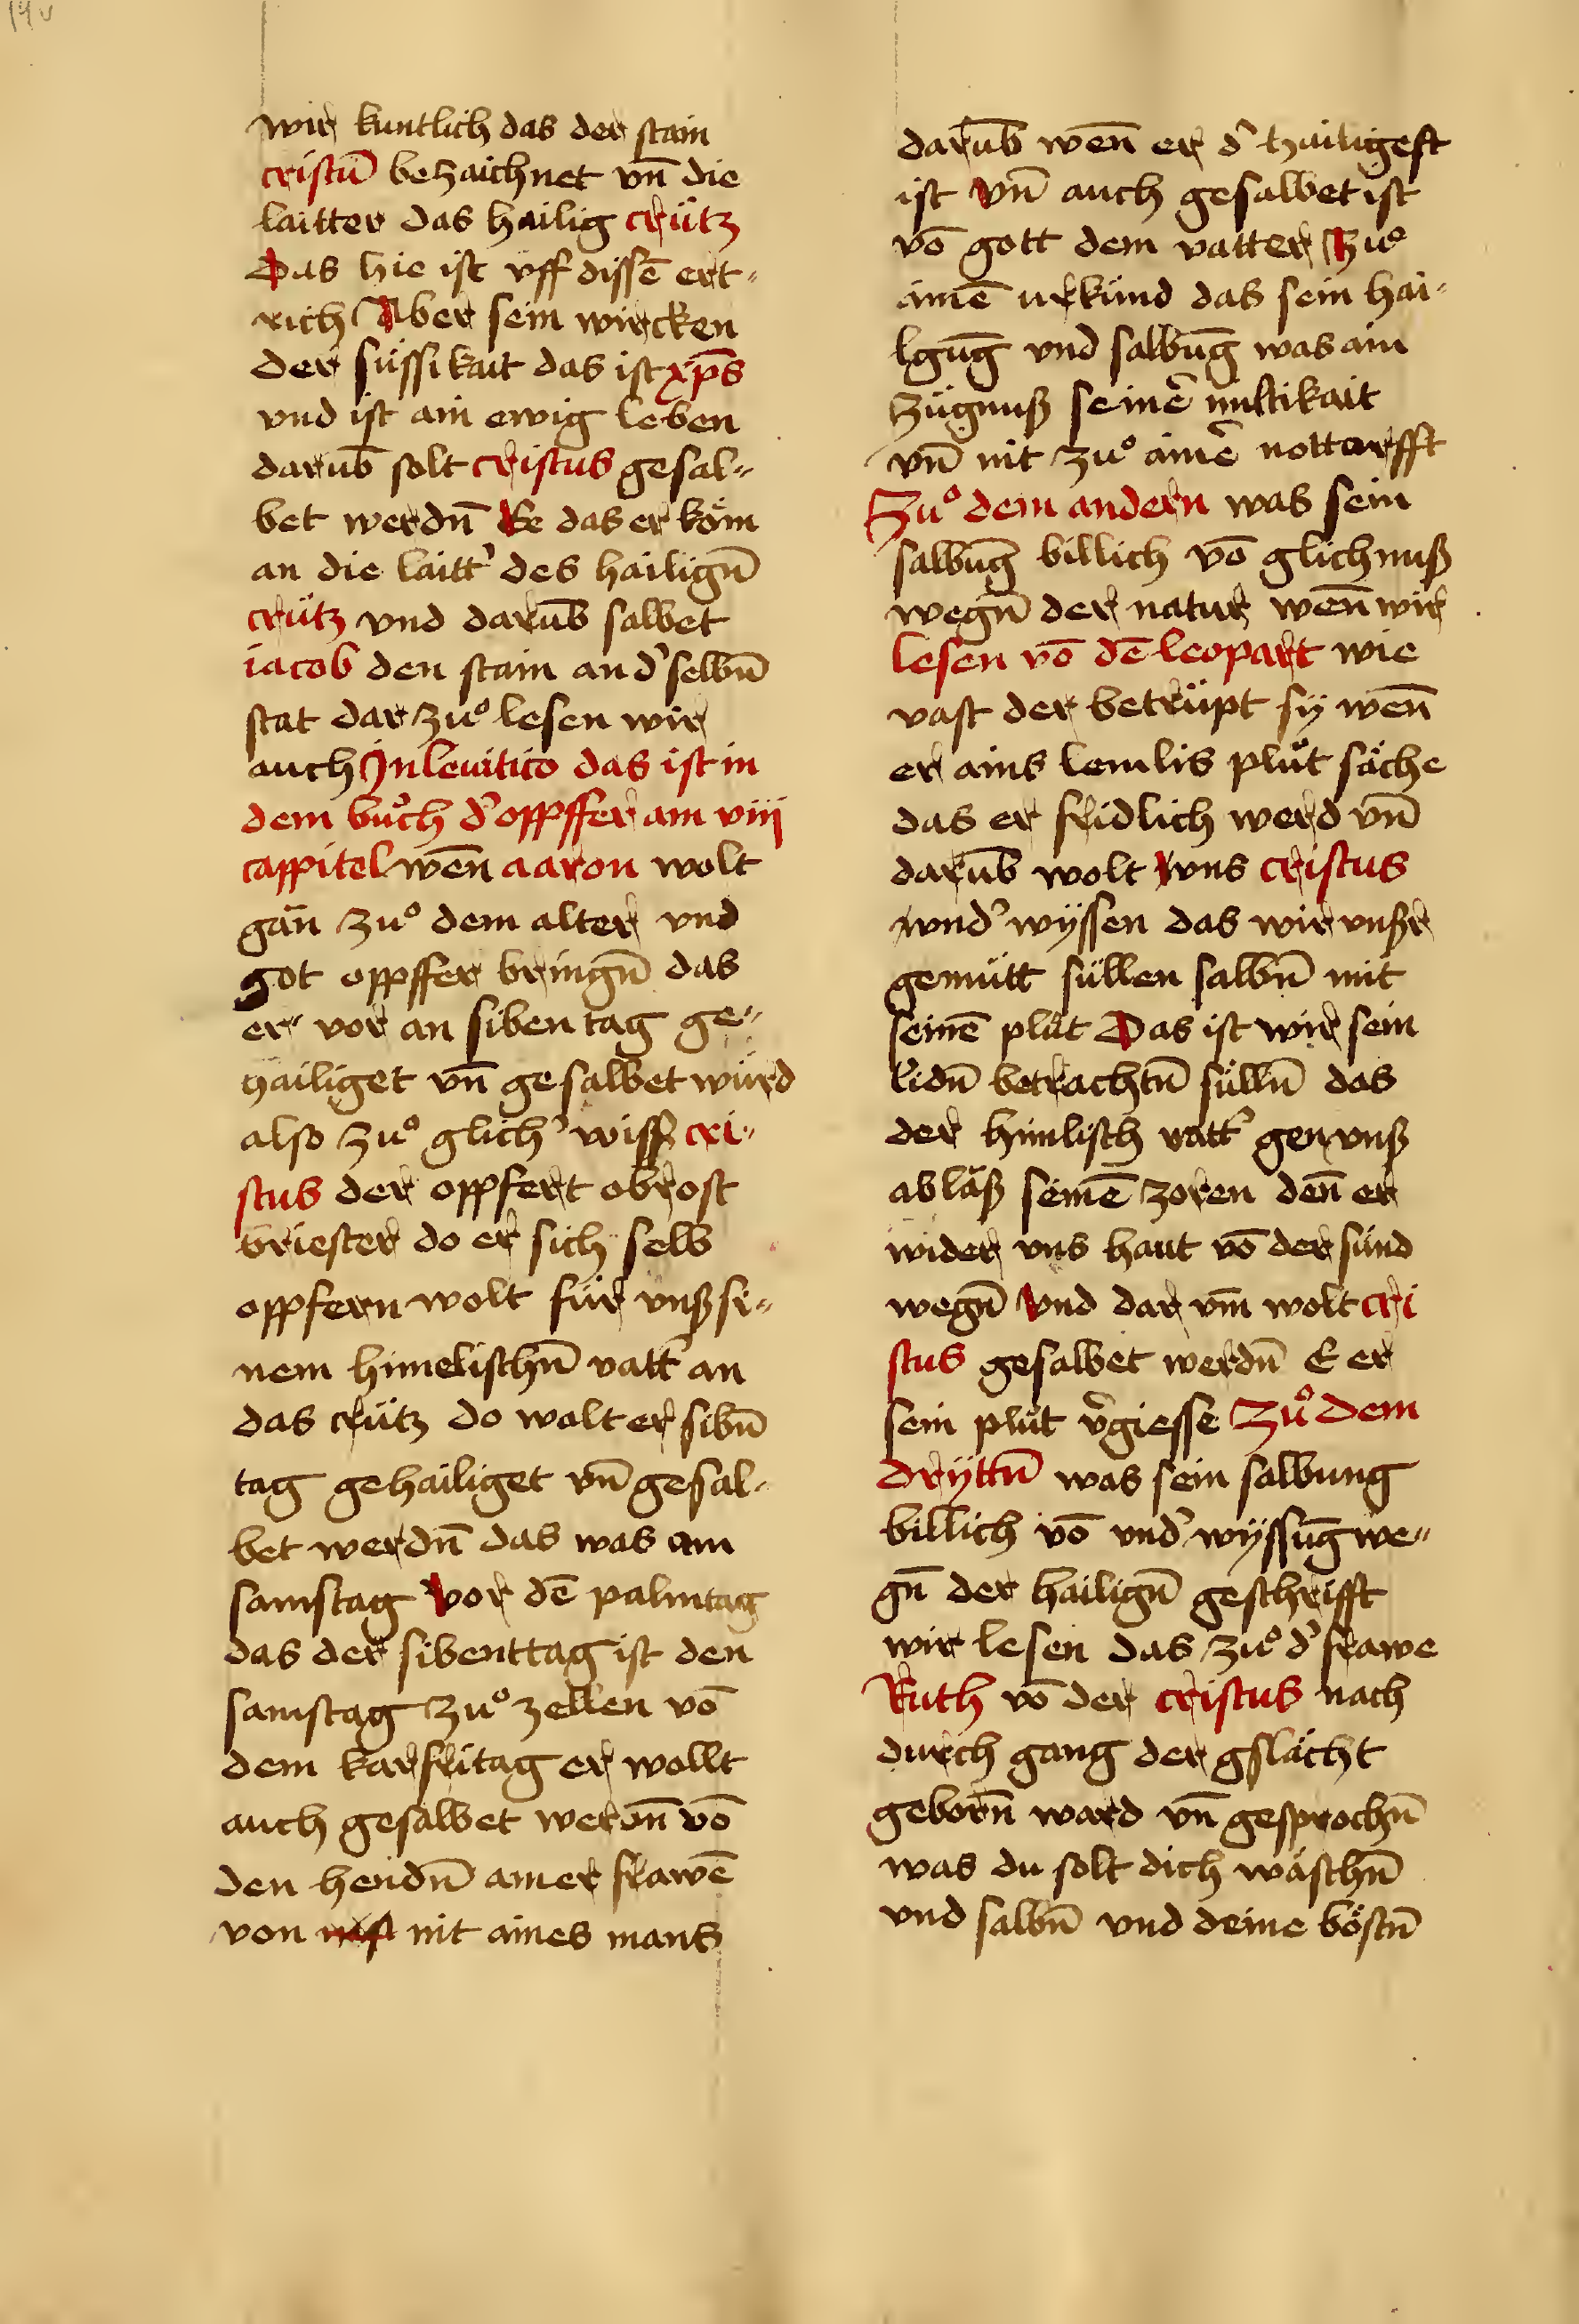 14v
wir kuntlich das der stain
cristū bezaichnet vn̄ die
laitter das hailig crütz
Das hie ist vff dissē ert-
rich Aber sein wircken
der süssikait das ist xp̄s
vnd ist ain ewig leben
darub̄ solt cristus gesal-
bet werdn̄ Ee das er köm
an die laitt' des hailign̄
crütz vnd darūb salbet
iacob den stain an d' selbn̄
stat dar zuͦ lesen wir
auch Jn leuitico das ist in
dem buͦch d' oppffer am viij
cappitel wēn aaron wolt
gän zuͦ dem alter vnd
got oppffer bringn̄ das
er vor an siben tag ge-
hailiget vn̄ gesalbet würd
also zuͦ glich' wiss cri-
stus der oppfert obrost
briester do er sich selb
oppfern wolt für vnß si-
nem himelischn̄ vatt' an
das crütz do walt er sibn̄
tag gehailiget vn̄ gesal-
bet werdn̄ das was am
samstag vor dē palmtag
das der sibenttag ist den
samstag zuͦ zellen vō
dem karfritag er wollt
auch gesalbet werdn̄ vō
den hendn̄ ainer frawē
von nit aines mans
darūb wēn er d' hailigest
ist vn̄ auch gesalbet ist
vō gott dem vatter zuͦ
ainē urkünd das sein hai-
lgūg vnd salbūg was ain
zügnuß seinē miltikait
vn̄ nit zuͦ ainē nottarfft
Zuͦ dem andern was sein
salbūg billich vō glichnuß
wegn̄ der natur wēn wir
lesen vō dē leopart wie
vast der betrüpt sy wēn
er ains lemlis pluͦt säche
das er fridlich werd vn̄
darūb wolt vns cristus
vnd' wyssen das wir vnßr
gemütt süllen salbn̄ mit
seinē pluͦt Das ist wir sein
lidn̄ betrachtn̄ sülln̄ das
der himlisch vatt' gen vnß
abläß seinē zoren dēn er
wider vns haut vō der sünd
wegn̄ vnd dar vm̄ wolt cri
stus gesalbet werdn̄ E er
sein pluͦt v'giesse Zuͦ dem
dryttn̄ was sein salbung
billich vō vnd' wyssūg we-
gn̄ der hailign̄ geschrifft
wir lesen das zuͦ d' frawe
Ruth vō der cristus nach
durch gang der gslächt
geborn̄ ward vn̄ gesprochn̄
was du solt dich wäschn̄
vnd salbn̄ vnd deine böstn̄